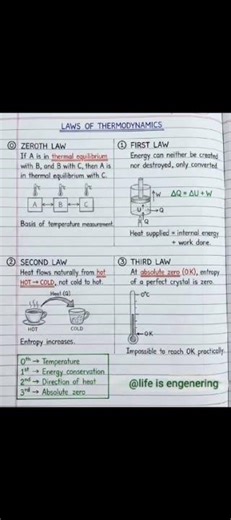 LAWS OF THERMODYNAMICS
0 ZEROTH LAW
If A is in thermal equilibrium
with B, and B with C, then A is
in thermal equilibrium with C.
A B C
Basis of temperature measurement.
1 FIRST LAW
Energy can neither be created
nor destroyed, only converted.
W
ΔQ = ΔU + W
U
Q
Q
Heat supplied = internal energy
+ work done.
2 SECOND LAW
Heat flows naturally from hot
HOT → COLD, not cold to hot.
Heat (Q)
HOT COLD
Entropy increases.
3 THIRD LAW
At absolute zero (0K), entropy
of a perfect crystal is zero.
0°C
0K
Impossible to reach 0K practically.
0th → Temperature
1st → Energy conservation
2nd → Direction of heat
3rd → Absolute zero
@life is engenering